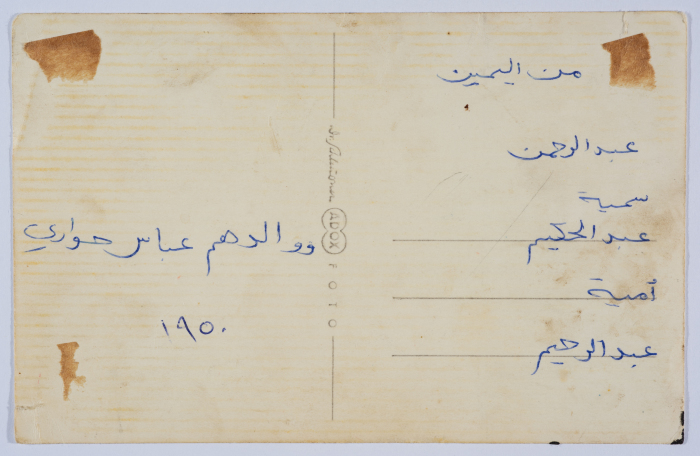 من اليمين
عبد الرحمن
سمية
عبد الحكيم
أمية
عبد الرحيم
ووالدهم عباس حواري
١٩٥٠
ADOX
FOTO